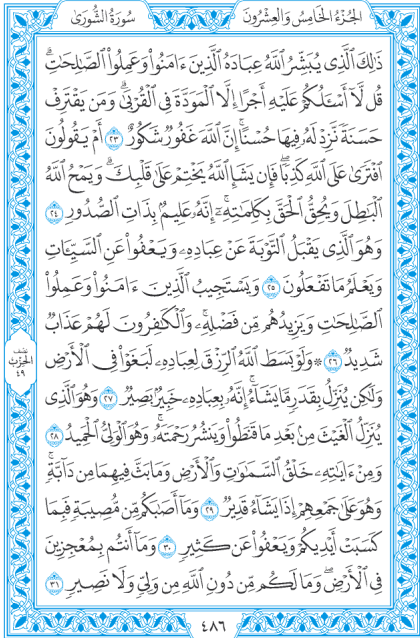 الجُزْءُ الخَامِسُ وَالعِشْرُونَ
سُورَةُ الشُّورَىٰ
ذَٰلِكَ ٱلَّذِى يُبَشِّرُ ٱللَّهُ عِبَادَهُ ٱلَّذِينَ ءَامَنُوا۟ وَعَمِلُوا۟ ٱلصَّـٰلِحَـٰتِ ۗ
قُل لَّآ أَسْـَٔلُكُمْ عَلَيْهِ أَجْرًا إِلَّا ٱلْمَوَدَّةَ فِى ٱلْقُرْبَىٰ ۗ وَمَن يَقْتَرِفْ
حَسَنَةً نَّزِدْ لَهُۥ فِيهَا حُسْنًا ۚ إِنَّ ٱللَّهَ غَفُورٌ شَكُورٌ ٢٣ أَمْ يَقُولُونَ
ٱفْتَرَىٰ عَلَى ٱللَّهِ كَذِبًا ۖ فَإِن يَشَإِ ٱللَّهُ يَخْتِمْ عَلَىٰ قَلْبِكَ ۗ وَيَمْحُ ٱللَّهُ
ٱلْبَـٰطِلَ وَيُحِقُّ ٱلْحَقَّ بِكَلِمَـٰتِهِۦٓ ۚ إِنَّهُۥ عَلِيمٌۢ بِذَاتِ ٱلصُّدُورِ ٢٤
وَهُوَ ٱلَّذِى يَقْبَلُ ٱلتَّوْبَةَ عَنْ عِبَادِهِۦ وَيَعْفُوا۟ عَنِ ٱلسَّيِّـَٔاتِ
وَيَعْلَمُ مَا تَفْعَلُونَ ٢٥ وَيَسْتَجِيبُ ٱلَّذِينَ ءَامَنُوا۟ وَعَمِلُوا۟
ٱلصَّـٰلِحَـٰتِ وَيَزِيدُهُم مِّن فَضْلِهِۦ ۚ وَٱلْكَـٰفِرُونَ لَهُمْ عَذَابٌ
شَدِيدٌ ٢٦ ۞ وَلَوْ بَسَطَ ٱللَّهُ ٱلرِّزْقَ لِعِبَادِهِۦ لَبَغَوْا۟ فِى ٱلْأَرْضِ
وَلَـٰكِن يُنَزِّلُ بِقَدَرٍ مَّا يَشَآءُ ۚ إِنَّهُۥ بِعِبَادِهِۦ خَبِيرٌۢ بَصِيرٌ ٢٧ وَهُوَ ٱلَّذِى
يُنَزِّلُ ٱلْغَيْثَ مِنۢ بَعْدِ مَا قَنَطُوا۟ وَيَنشُرُ رَحْمَتَهُۥ ۚ وَهُوَ ٱلْوَلِىُّ ٱلْحَمِيدُ ٢٨
وَمِنْ ءَايَـٰتِهِۦ خَلْقُ ٱلسَّمَـٰوَٰتِ وَٱلْأَرْضِ وَمَا بَثَّ فِيهِمَا مِن دَآبَّةٍ ۚ
وَهُوَ عَلَىٰ جَمْعِهِمْ إِذَا يَشَآءُ قَدِيرٌ ٢٩ وَمَآ أَصَـٰبَكُم مِّن مُّصِيبَةٍ فَبِمَا
كَسَبَتْ أَيْدِيكُمْ وَيَعْفُوا۟ عَن كَثِيرٍ ٣٠ وَمَآ أَنتُم بِمُعْجِزِينَ
فِى ٱلْأَرْضِ ۖ وَمَا لَكُم مِّن دُونِ ٱللَّهِ مِن وَلِىٍّ وَلَا نَصِيرٍ ٣١
نصف
الحزب
٤٩
٤٨٦